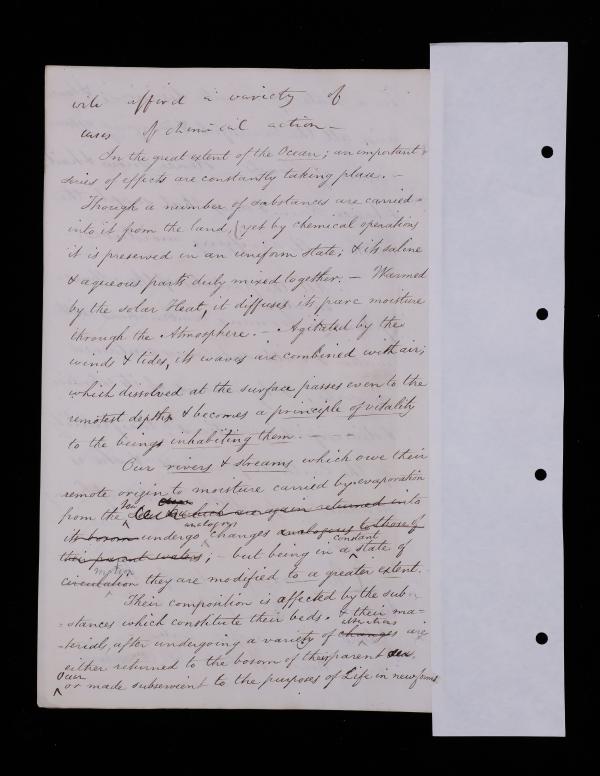 will afford a variety of
cases of chemical action –
In the great extent of the Ocean; an important
series of effects are constantly taking place. –
Though a number of substances are carried
into it from the land, yet by chemical operations
it is preserved in an uniform state; & its saline
& aqueous parts duly mixed together. – Warmed
by the solar Heat, it diffuses its pure moisture
through the Atmosphere. – Agitated by the
winds & tides, its waves are combined with air;
which dissolved at the surface passes even to the
remotest depths & becomes a principle of vitality
to the beings inhabiting them. – –
Our rivers & streams which owe their
remote origin to moisture carried by evaporation
from the Sea which are again returned into
analogous
its bosom undergo changes analogous to those of
constant
their parent waters; – but being in a state of
motion
circulation they are modified to a greater extent.
Their composition is affected by the sub
stances which constitute their beds. & their ma=
-terials, after undergoing a variety of changes are
either returned to the bosom of their parent sea,
or made subservient to the purposes of Life in new forms.